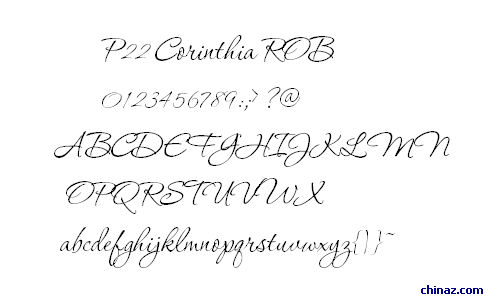 P22 Corinthia ROB
0123456789:;? ?@
ABCDEFGHIJKLMN
OPQRSTUVWX
abcdefghijklmnopqrstuvwxyz{|}~
chinaz.com